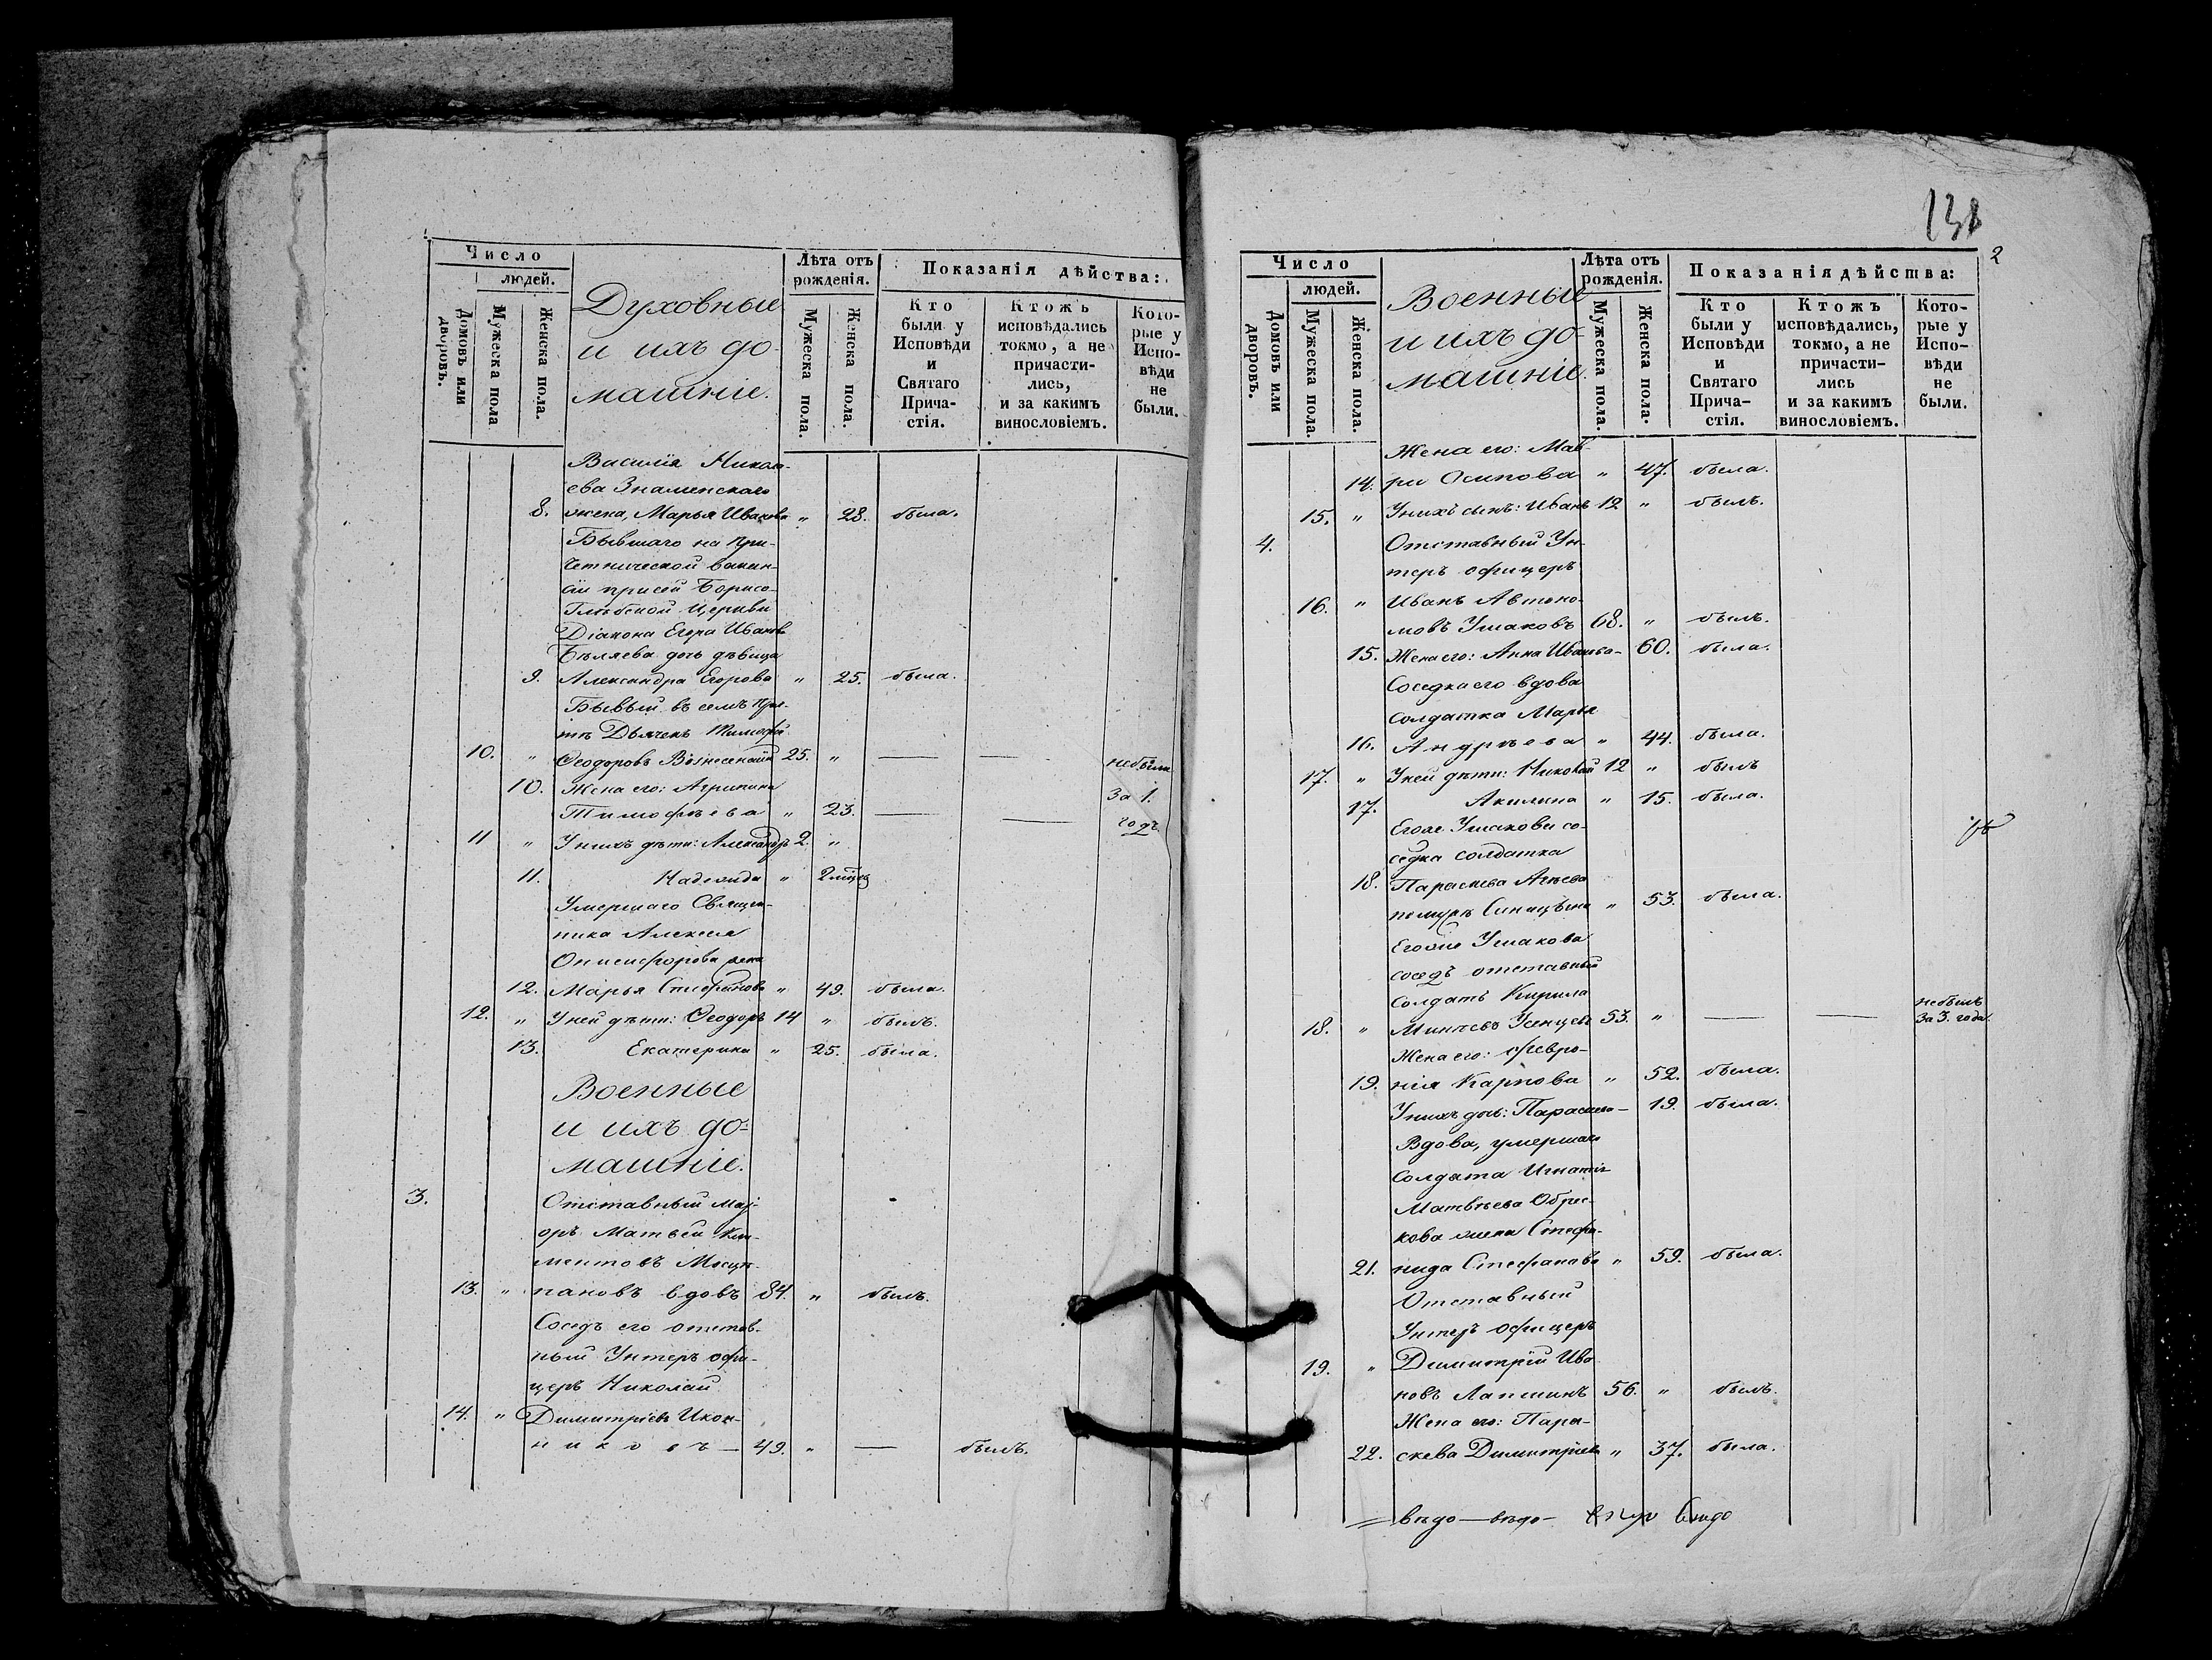 Число
людей.
Домовъ или дворовъ.
Мужеска пола
Женска пола.
Духовные
и ихъ до-
машніе.
Лѣта отъ
рожденія.
Мужеска пола.
Женска пола.
Показанія дѣйства:
Кто
были у
Исповѣди
и
Святаго
Прича-
стія.
Ктожъ
исповѣдались
токмо, а не
причасти-
лись,
и за какимъ
винословіемъ.
Кото-
рые у
Испо-
вѣди
не
были.
Василія Никола-
ева Знаменскаго
8. жена, Марья Иванова " 28. была.
Бывшаго на при-
четнической вакан-
сіи при сей Борисо-
Глѣбской Церкви
Діакона Егора Иванова
Бѣляева дочь дѣвица
9. Александра Егорова " 25. была.
Бывый въ семъ при-
тѣ Дьячекъ Тимофей
10. " Ѳеодоровъ Вознесенскій 25. " — — не были
10. Жена его: Агрипина За 1.
Тимофѣева " 23. — — годъ
11 " У нихъ дѣти: Александръ 2. "
11. Надежда " 2 мѣсяц
Умершаго Священ-
ника Алексея
Онисифорова жена
12. Марья Стефанова " 49. была.
12. " У ней дѣти: Ѳеодоръ 14 " былъ.
13. Екатерина " 25. была.
Военные
и ихъ до-
машніе.
3. Отставный Маі-
оръ Матвей Кли-
ментовъ
13. " пановъ вдовъ 84. " былъ.
Соседъ его отстав-
ный Унтеръ офи-
церъ Николай
14. " Димитріевъ Икон-
никовъ — 49. " — былъ.
138
2
Число
людей.
Домовъ или дворовъ.
Мужеска пола.
Женска пола.
Военные
и ихъ до-
машніе.
Лѣта отъ
рожденія.
Мужеска пола.
Женска пола.
Показанія дѣйства:
Кто
были у
Исповѣди
и
Святаго
Прича-
стія.
Ктожъ
исповѣдались,
токмо, а не
причасти-
лись
и за какимъ
винословіемъ.
Кото-
рые у
Испо-
вѣди
не
были.
Жена его: Мав-
14. ра Осипова " 47. была.
15. " У нихъ сынъ: Иванъ 12 " былъ.
4. Отставный Ун-
теръ офицеръ
16. " Иванъ Автоно-
мовъ Ушаковъ 68. " былъ.
15. Жена его: Анна Иванова - 60. была.
Соседка его вдова
солдатка Марья
16. Андрѣева " 44. была.
17. " У ней дѣти: Николай 12 " былъ
17. Акилина " 15. была.
Егоже Ушакова со-
седка солдатка
18. Параскева Агѣева
по мужѣ Синицына " 53. была.
Егоже Ушакова
соседъ отставный
Солдатъ Кирила не былъ
18. " Минѣевъ Усенцевъ 53. " — — За 3. года
Жена его: Февро-
19. нія Карпова " 52. была.
У нихъ дочь: Параскева — 19. была.
Вдова, умершаго
Солдата Игнатія
Матвѣева Обрес-
кова жена Стефа-
21. нида Стефанова " 59. была.
Отставный
Унтеръ офицеръ
19. " Димитрій Ива-
новъ Лапшинъ 56. " былъ.
Жена его: Пара-
22. скева Димитріева " 37. была.